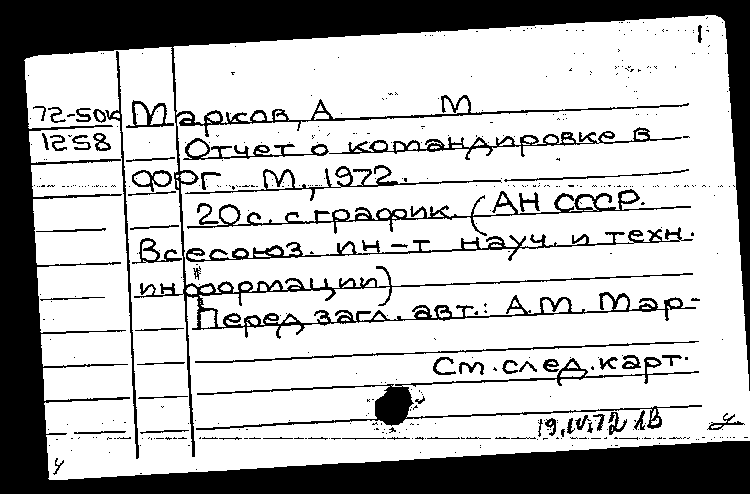 1
72-50к Марков, А М
1258 Отчет о командировке в
ФОРГ. М., 1972.
20 с. с график. (АН СССР.
Всесоюз. ин-т науч. и техн.
информации)
Перед загл. авт.: А.М. Мар-
См. след. карт.
19.IV.72 1В